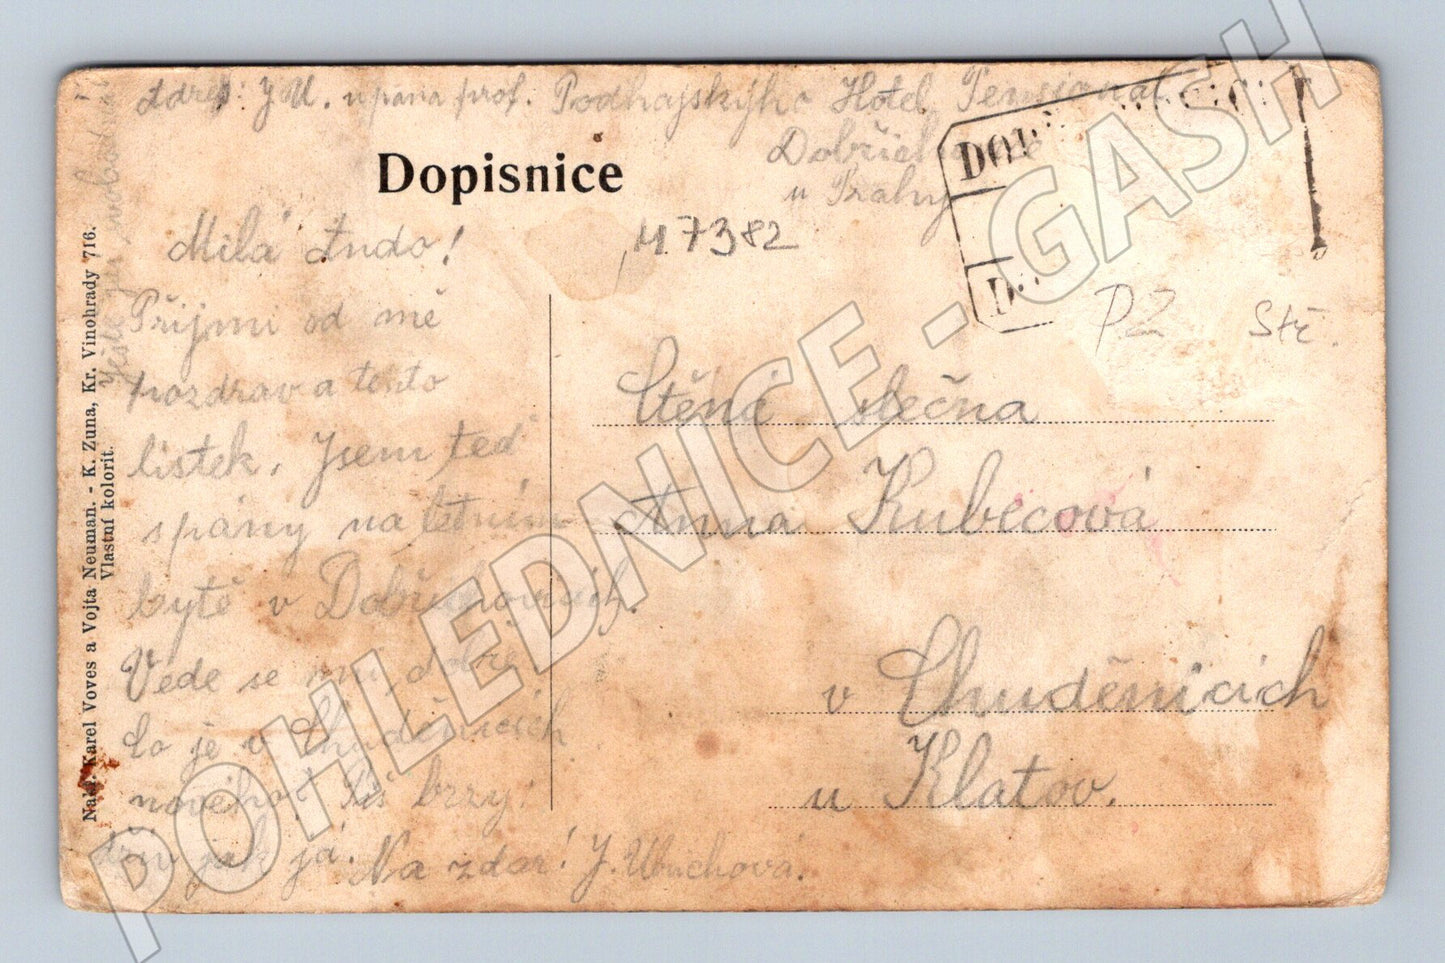 Adres: J. U. u pána prof. Podhajského Hotel Pensionat
Dobřichovice
u Prahy
Dopisnice
M 7382
DOB
D
PZ
Stč.
Milá Ando!
Přijmi od mě
pozdrav a tento
lístek. Jsem teď
s pány na letním
bytě v Dobřichovicích.
Vede se mi dobře
Co je v Chuděnicích
nového? Piš brzy.
dřív jak já. Na zdar! J. Ubuchová.
Ctěná slečna
Anna Kubecová
v Chuděnicích
u Klatov.
Nakl. Karel Voves a Vojta Neuman. - K. Zuna, Kr. Vinohrady 716.
Vlastní kolorit.
POHLEDNICE - GASH